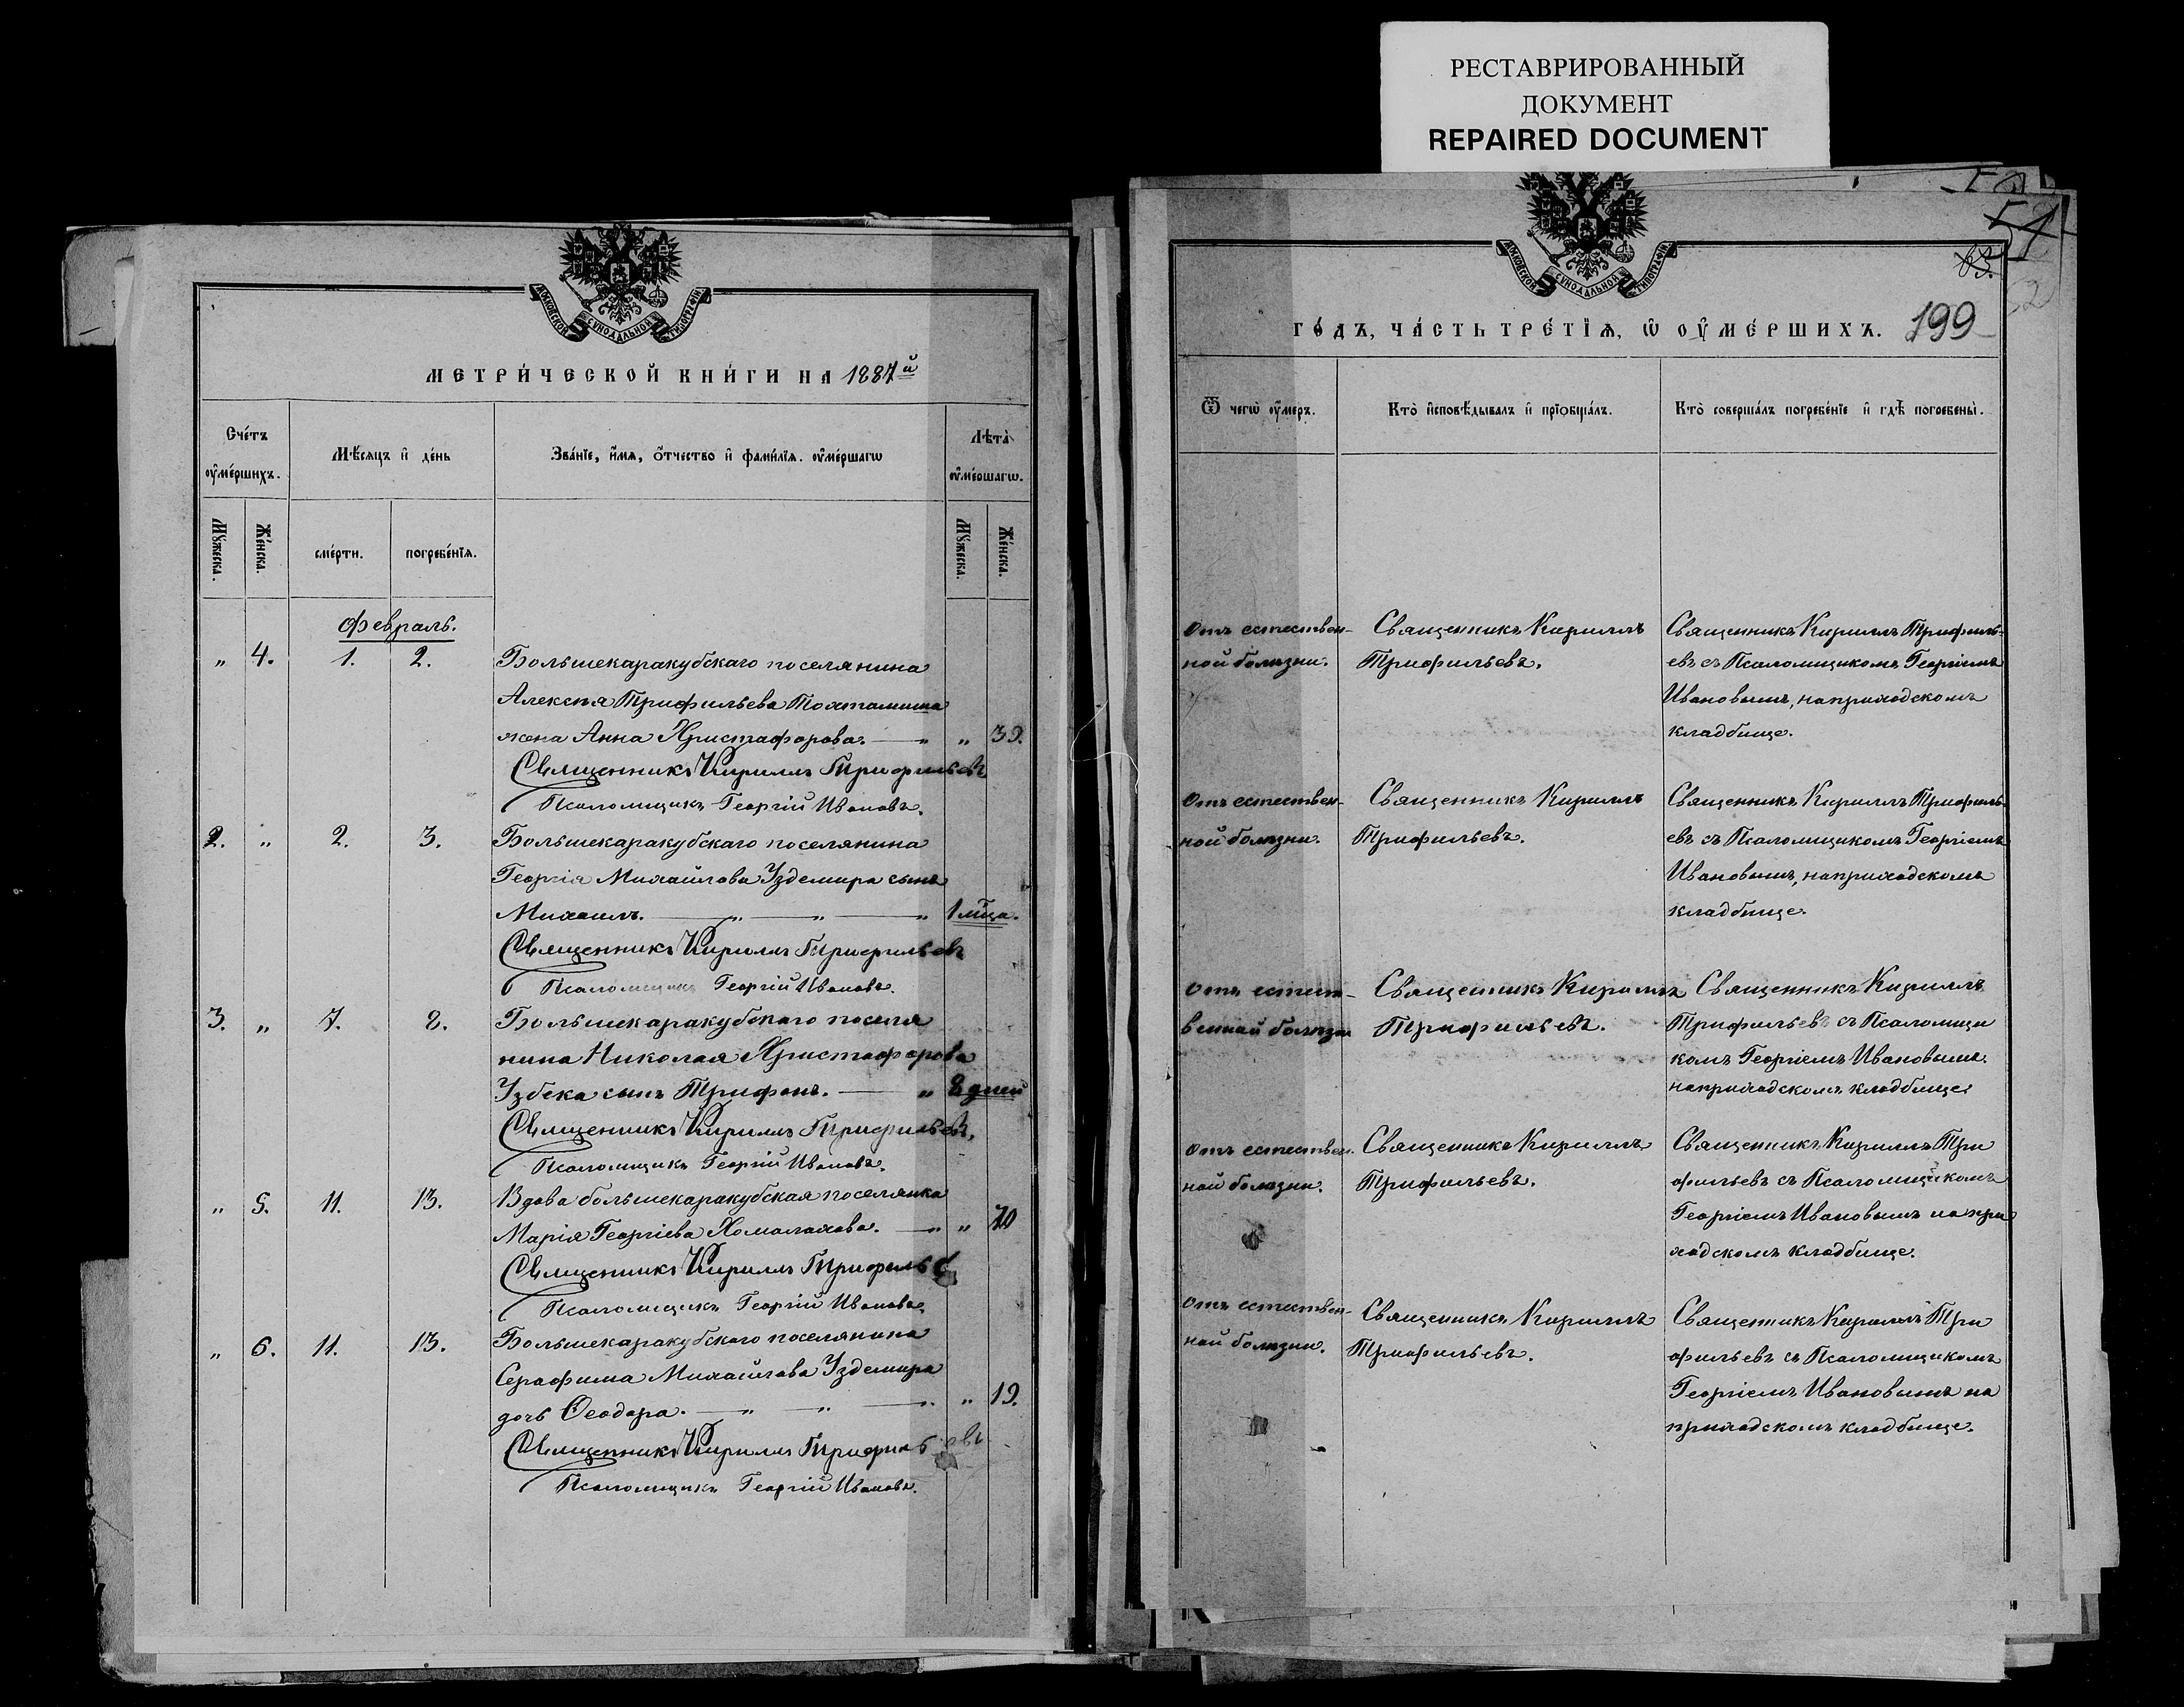 РЕСТАВРИРОВАННЫЙ
ДОКУМЕНТ
REPAIRED DOCUMENT
МОСКОВСКОЙ СѴНОДАЛЬНОЙ ТИПОГРАФІИ
МЕТРИ́ЧЕСКОЙ КНИ́ГИ НА 1887й
Сче́тъ ѹ҆ме́ршихъ.
Мѣ́сяцъ и҆ де́нь
Зва́нїе, и҆́мя, ѻ҆́тчество и҆ фами́лїя. ѹ҆ме́ршагѡ
Лѣта̀ ѹ҆ме́ршагѡ.
Мꙋ́жеска.
Же́нска.
сме́рти.
погребе́нїя.
Мꙋ́жеска.
Же́нска.
Февраль.
„ 4. 1. 2. Большекаракубскаго поселянина
Алексѣя Трифильева Тохтамыша
жена Анна Христафорова. — „ „ 39.
Священникъ Кириллъ Трифильевъ
Псаломщикъ Георгій Ивановъ.
2. „ 2. 3. Большекаракубскаго поселянина
Георгія Михайлова Уздемира сынъ
Михаилъ. — „ — „ — „ 1 мца.
Священникъ Кириллъ Трифильевъ
Псаломщикъ Георгій Ивановъ.
3. „ 7. 8. Большекаракубскаго поселя
нина Николая Христафорова
Узбека сынъ Трифонъ. — „ 8 дней
Священникъ Кириллъ Трифильевъ,
Псаломщикъ Георгій Ивановъ.
„ 5. 11. 13. Вдова большекаракубская поселянка
Марія Георгіева Хомалахова. — „ „ 70
Священникъ Кириллъ Трифиль
Псаломщикъ Георгій Ивановъ.
„ 6. 11. 13. Большекаракубскаго поселянина
Серафима Михайлова Уздемира
дочь Ѳеодора. — „ — „ — „ „ 19.
Священникъ Кириллъ Трифильевъ
Псаломщикъ Георгій Ивановъ.
МОСКОВСКОЙ СѴНОДАЛЬНОЙ ТИПОГРАФІИ
63.
ГО́ДЪ, ЧА́СТЬ ТРЕ́ТЇѦ, Ѡ҆ ОУ҆МЕ́РШИХЪ. 199
Ѿ чегѡ̀ ѹ҆́меръ.
Кто̀ и҆сповѣ́дывалъ и҆ прїѡбща́лъ.
Кто̀ соверша́лъ погребе́нїе и҆ гдѣ̀ погребены̀.
Отъ естествен-
ной болѣзни.
Священникъ Кириллъ
Трифильевъ.
Священникъ Кириллъ Трифиль-
евъ съ Псаломщикомъ Георгіемъ
Ивановымъ, на приходскомъ
кладбище.
Отъ естествен-
ной болѣзни.
Священникъ Кириллъ
Трифильевъ.
Священникъ Кириллъ Трифиль-
евъ съ Псаломщикомъ Георгіемъ
Ивановымъ, на приходскомъ
кладбище.
Отъ естест-
венной болѣзни
Священникъ Кириллъ
Трифильевъ.
Священникъ Кириллъ
Трифильевъ съ Псаломщи
комъ Георгіемъ Ивановымъ.
на приходскомъ кладбище.
Отъ естествен-
ной болѣзни.
Священникъ Кириллъ
Трифильевъ.
Священникъ Кириллъ Три
фильевъ съ Псаломщикомъ
Георгіемъ Ивановымъ на при
ходскомъ кладбище.
Отъ естествен-
ной болѣзни.
Священникъ Кириллъ
Трифильевъ.
Священникъ Кириллъ Три
фильевъ съ Псаломщикомъ
Георгіемъ Ивановымъ на
приходскомъ кладбище.